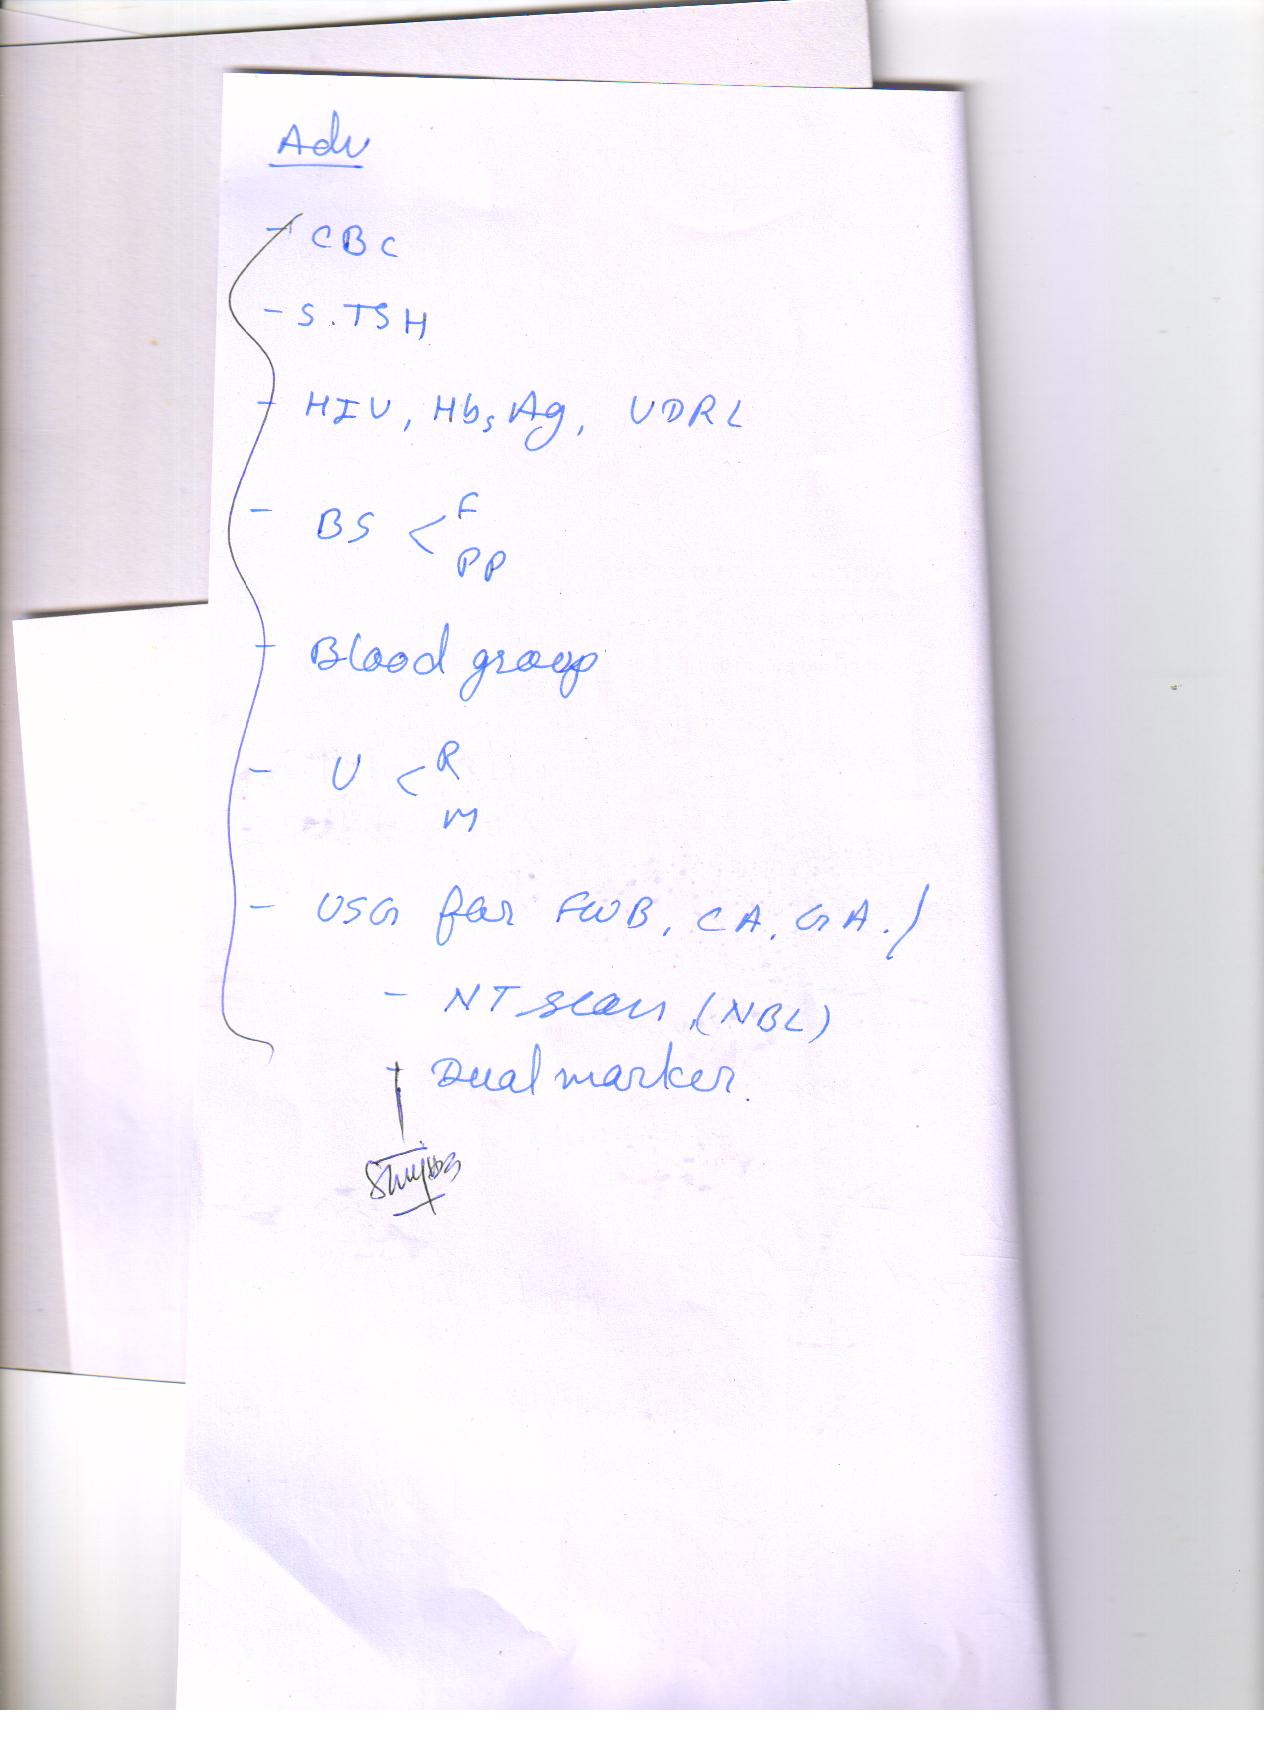 Adv
- CBC
- S. TSH
- HIV, HbsAg, VDRL
- BS < F
PP
- Blood group
- U < R
M
- USG for FWB, CA, GA./
- NT scan, (NBL)
- Dual marker.